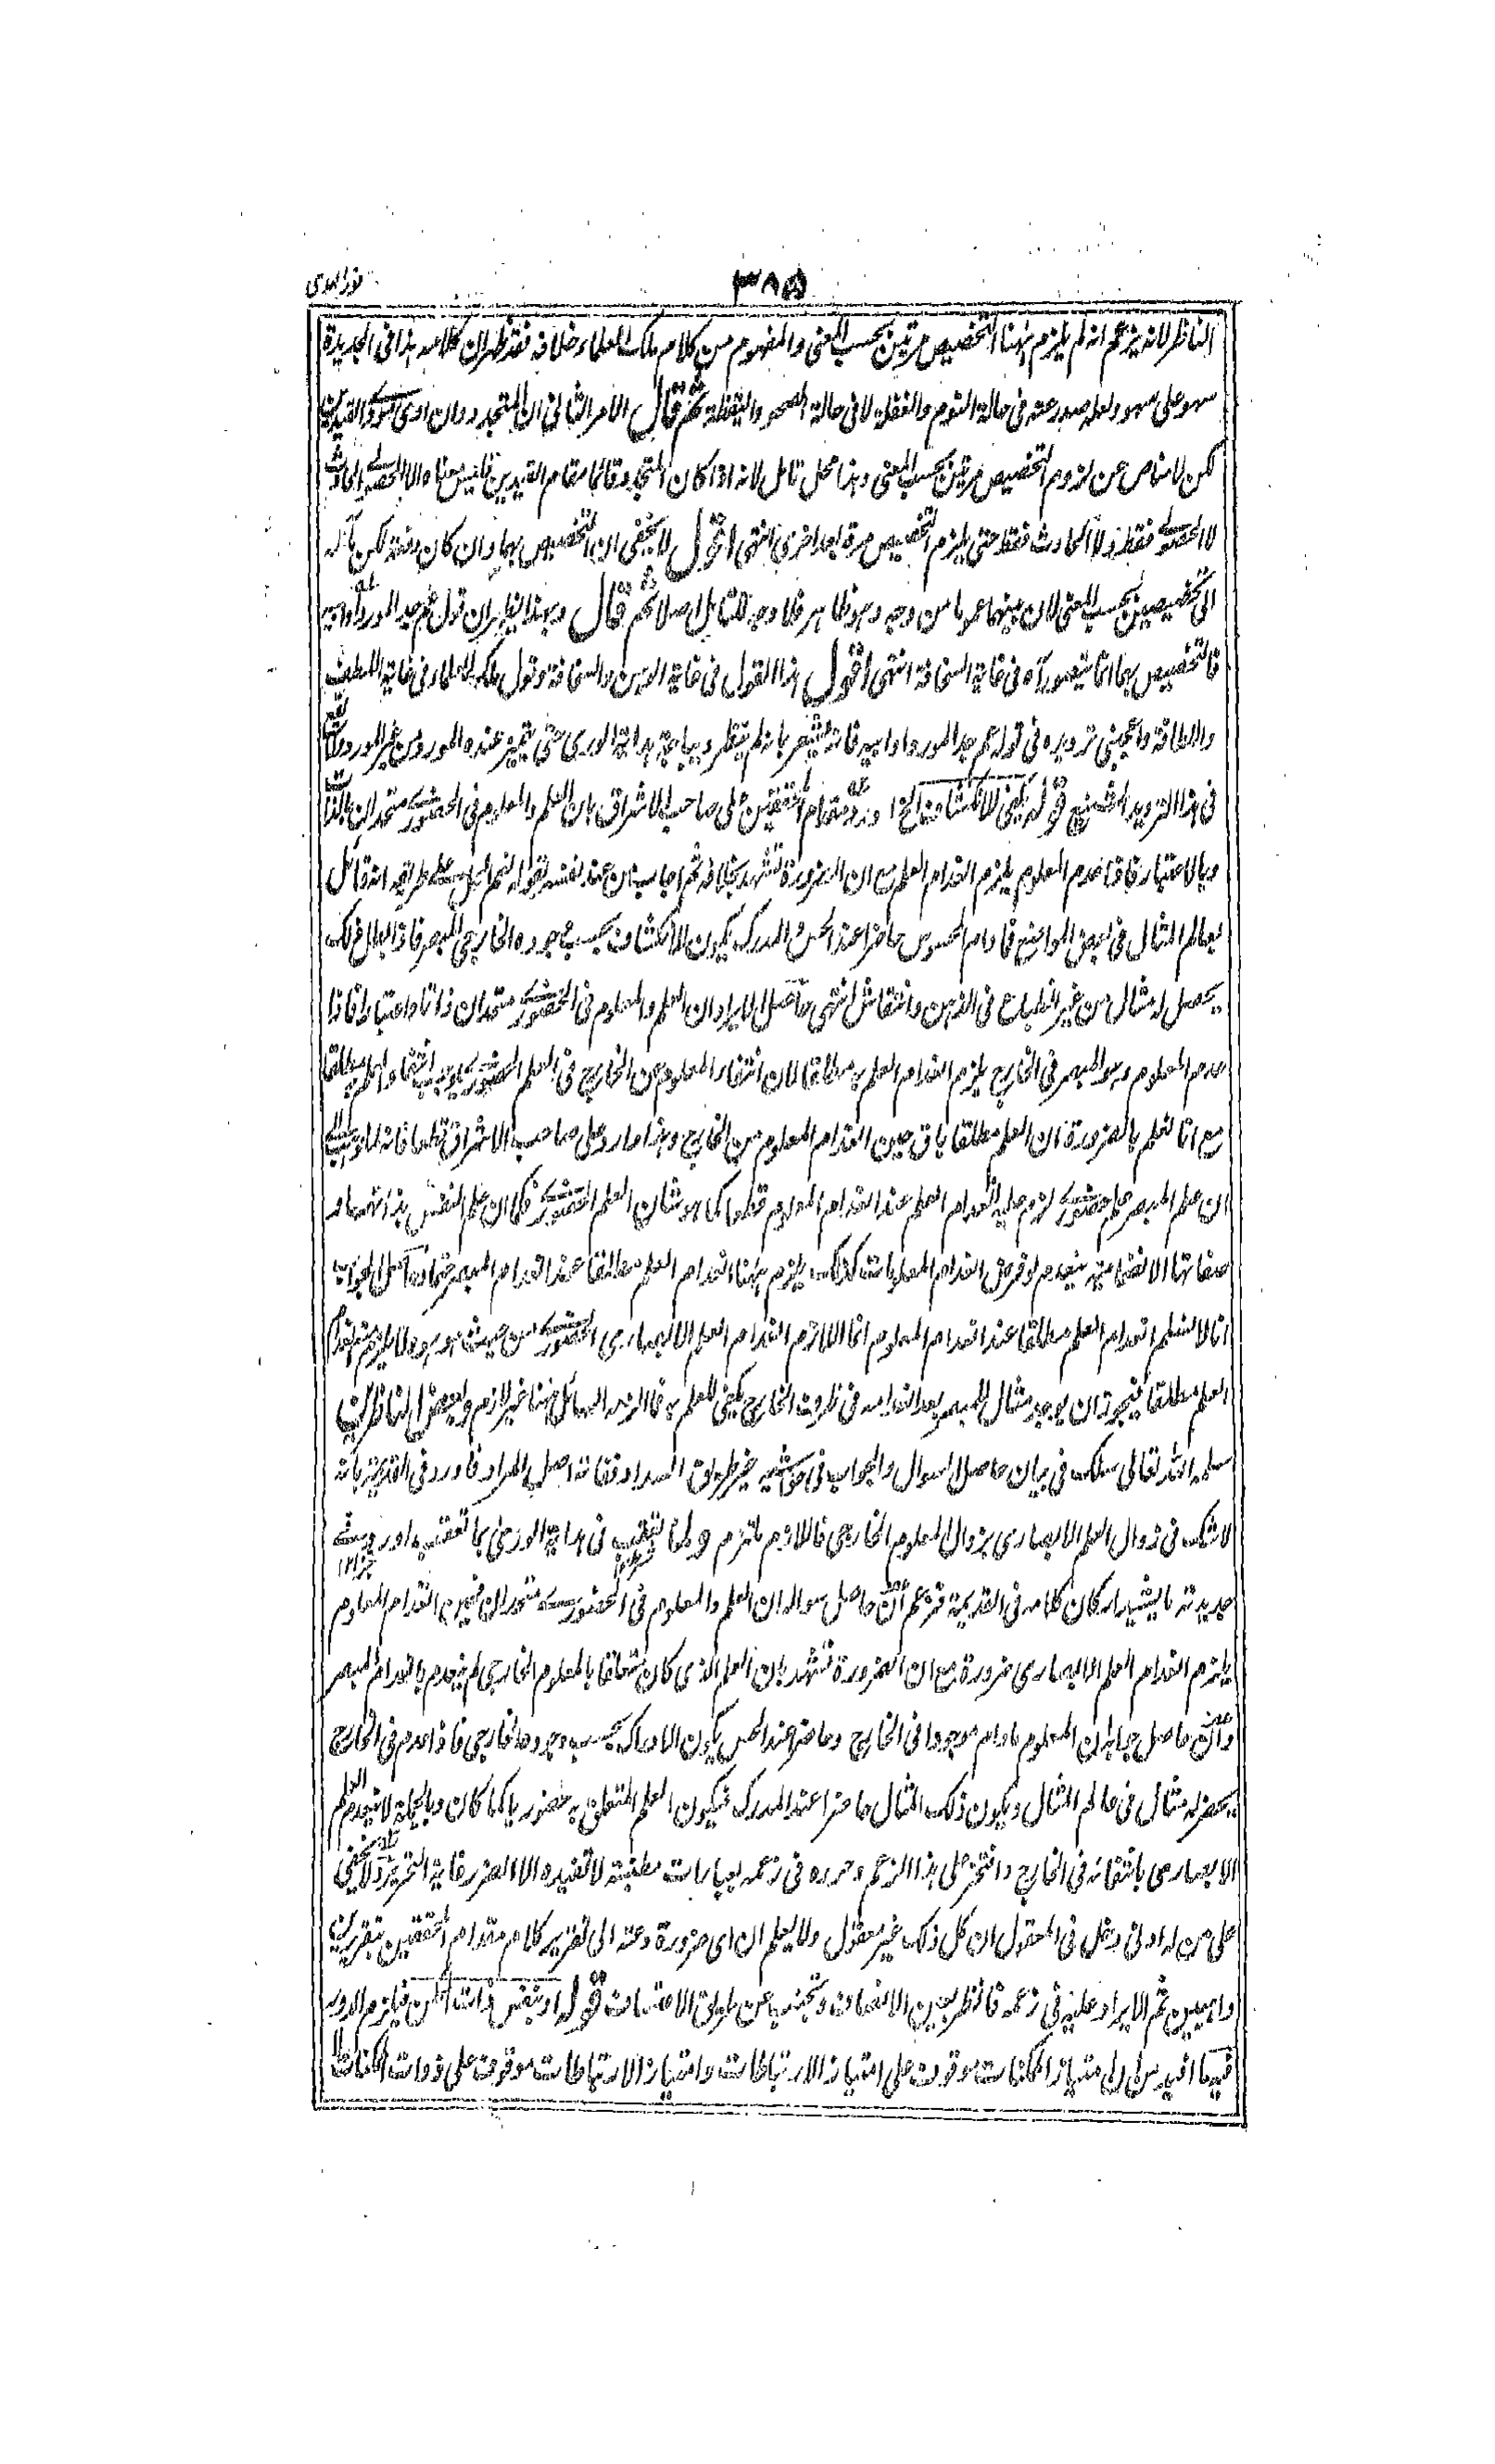 ٣٨٥
نور الهدى
الناظر لانه يزعم انه لم يلزم ههنا التخصيص مرتين بحسب المعنى والمفهوم من كلام ملك العلماء خلافه فقد ظهر ان كلامه هذا فى الجديدة
سهو على سهو ولعله صدر عنه فى حالة النوم والغفلة لا فى حالة الصحو واليقظة ثم قال الامر الثانى ان المتجدد وان ادى مودى القيدين
لكن لا مناص عن لزوم التخصيص مرتين بحسب المعنى وهذا محل تامل لانه اذا كان المتجدد قائما مقام القيدين فليس معناه الا الحصولى الحادث
لا الحصولى فقط ولا الحادث فقط حتى يلزم التخصيص مرة بعد اخرى انتهى اقول لا يخفى ان التخصيص بهما وان كان دفعة لكن مآله
الى تخصيصين بحسب المعنى لان بينهما عموما من وجه وهو ظاهر فلا وجه للتامل اصلا ثم قال وبهذا يظهر ان قول عم جد المورد او ابيه
فالتخصيص بهما انما يتصور آه فى غاية السخافة انتهى اقول هذا القول فى غاية الوهن والسخافة وقول ملك العلماء فى غاية اللطف
واللطافة واعجبنى ترديده فى قوله عم جد المورد او ابيه فانه يشعر بانه لم ينظر ديباجة هداية الورى حتى يتميز عنده المورد من غير المورد
فى هذا الترديد الشنيع قوله يكفى للانكشاف الخ اورد مقدام المحققين على صاحب الاشراق بان العلم والمعلوم فى الحضورى متحدان بالذات
وبالاعتبار فاذا عدم المعلوم يلزم انعدام العلم مع ان الضرورة تشهد بخلافه ثم اجاب عن عند نفسه بقوله نعم على طريقه انه قائل
بعالم المثال فى بعض المواضع فما دام المحسوس حاضرا عند الحس والمدرك يكون الانكشاف بحسب وجوده الخارجى المبصر فاذا زال ذلك
يحصل له مثال من غير انطباع فى الذهن وانتقاش انتهى حاصل الايراد ان العلم والمعلوم فى الحضورى متحدان ذاتا واعتبارا فاذا
عدم المعلوم وهو المبصر فى الخارج يلزم انعدام العلم به مطلقا لان انتفاء المعلوم من الخارج فى العلم الحضورى يوجب انتفاء العلم به مطلقا
مع انا نعلم بالضرورة ان العلم مطلقا باق حين انعدام المعلوم من الخارج وهذا وارد على صاحب الاشراق قطعا فانه لما ذهب الى
ان علم المبصر علم حضورى لزم عليه انعدام العلم عند انعدام المعلوم قطعا كما هو شان العلم الحضورى فكما ان علم النفس بذاتها و
صفاتها الانضمامية ينعدم لو فرض انعدام المعلومات كذلك يلزم ههنا انعدام العلم مطلقا عند انعدام المبصر حتما وحاصل الجواب
انا لا نسلم انعدام العلم مطلقا عند انعدام المعلوم انما اللازم انعدام العلم الابصارى الحضورى من حيث هو هو ولا يلزم منه انعدام
العلم مطلقا فيجوز ان يوجد مثال للمبصر بعد انعدامه فى ظروف الخارج يكفى للعلم به فما الزمه السائل ههنا غير لازم وبعض الناظرين
سلمه الله تعالى سلك فى بيان حاصل السوال والجواب فى حواشيه غير طريق السداد ففاته اصل المراد فاورد فى القديمة بانه
لا شك فى زوال العلم الابصارى بزوال المعلوم الخارجى فاللازم ملتزم ولما تعقب فى هداية الورى بما تعقب اورد فى
جديدته ما يشيد اركان كلامه فى القديمة فزعم ان حاصل سواله ان العلم والمعلوم فى الحضورى متحدان فحين انعدام المعلوم
يلزم انعدام العلم الابصارى ضرورة مع ان الضرورة تشهد بان العلم الذى كان متعلقا بالمعلوم الخارجى لم ينعدم بانعدام المبصر
وان حاصل جوابه ان المعلوم مادام موجودا فى الخارج وحاضرا عند الحس يكون الادراك بحسب وجوده الخارجى فاذا عدم فى الخارج
يحضر له مثال فى عالم المثال ويكون ذلك المثال حاضرا عند المدرك فيكون العلم المتعلق به حضوريا كما كان وبالجملة لا ينعدم العلم
الابصارى بانتفائه فى الخارج وافتخر على هذا الزعم وحرره فى زعمه بعبارات مطنبة لا تفيده الا الضرر غاية التحرير ولا يخفى
على من له ادنى دخل فى المعقول ان كل ذلك غير معقول ولا يعلم ان اى ضرورة دعته الى تقرير كلام مقدام المحققين بتقريرين
واهيين ثم الايراد عليه فى زعمه فانظر بعين الانصاف وتجنب عن طريق الاعتساف قوله او بنفس ذات الممكن فيلزم الدور
فيما افيد من ان امتياز الممكنات موقوف على امتياز الارتباطات وامتياز الارتباطات موقوف على ذوات الممكنات